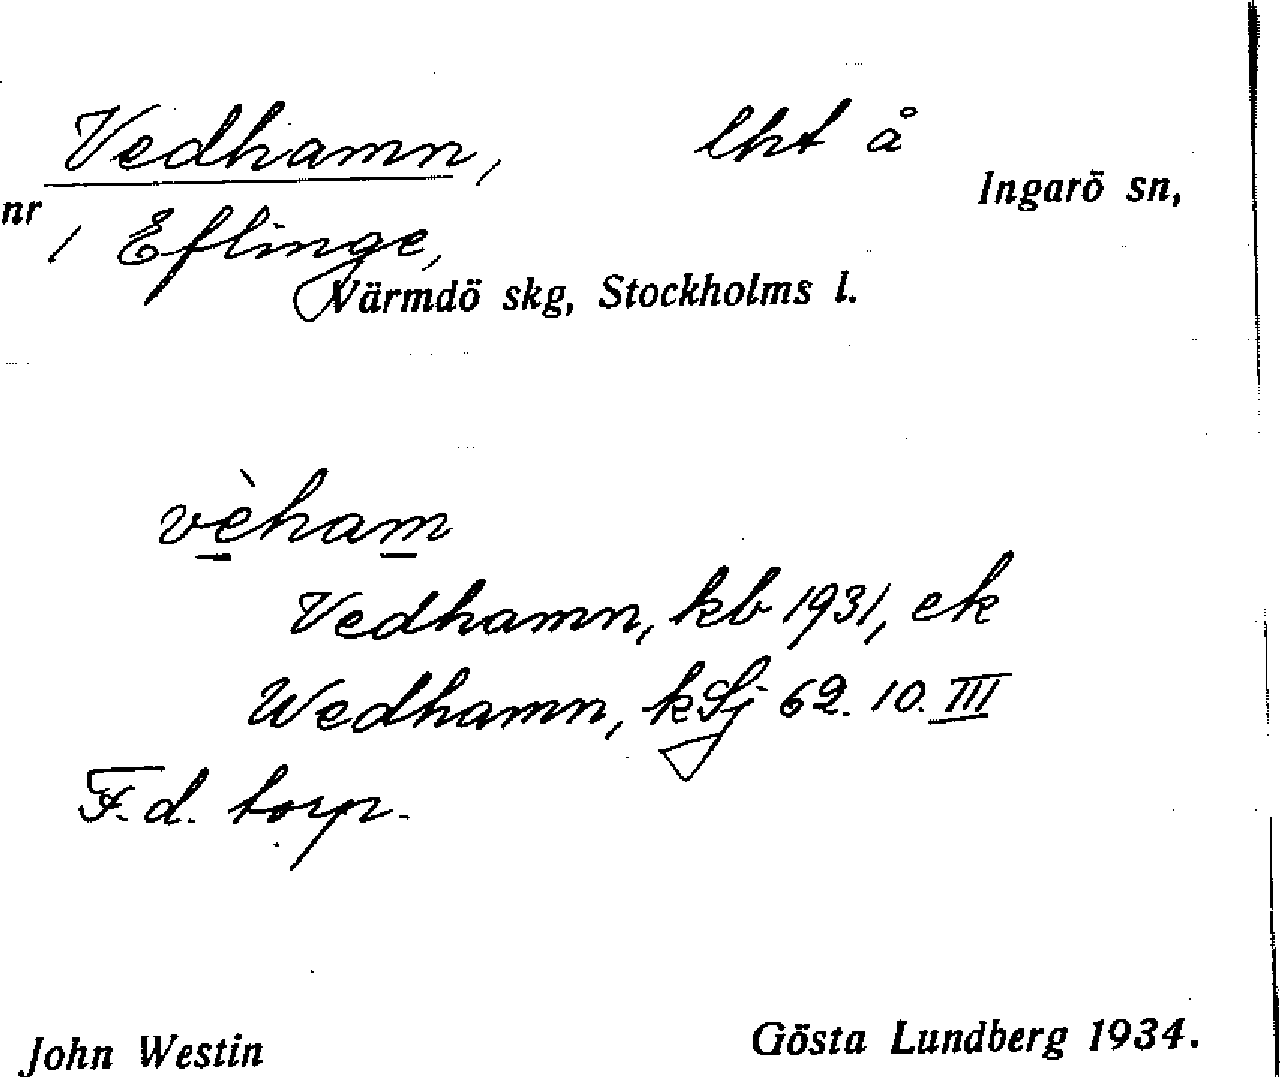 Vedhamn, lht å
Ingarö sn,
nr 1 Eflinge,
Värmdö skg, Stockholms l.
vèham
Vedhamn, kb 1931, ek
Wedhamn, kSj 62. 10. III
F.d. torp.
John Westin Gösta Lundberg 1934.